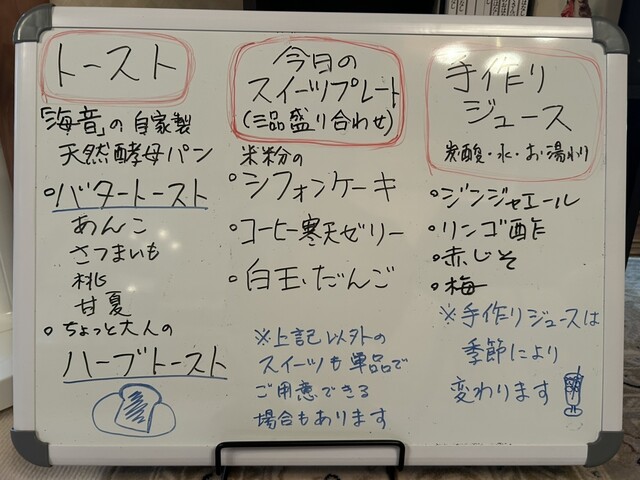 トースト
「海音」の自家製
天然酵母パン
○バタートースト
あんこ
さつまいも
桃
甘夏
○ちょっと大人の
ハーブトースト
今日の
スイーツプレート
(三品盛り合わせ)
米粉の
○シフォンケーキ
○コーヒー寒天ゼリー
○白玉だんご
※上記以外の
スイーツも単品で
ご用意できる
場合もあります
手作り
ジュース
炭酸・水・お湯わり
○ジンジャエール
○リンゴ酢
○赤じそ
○梅
※手作りジュースは
季節により
変わります